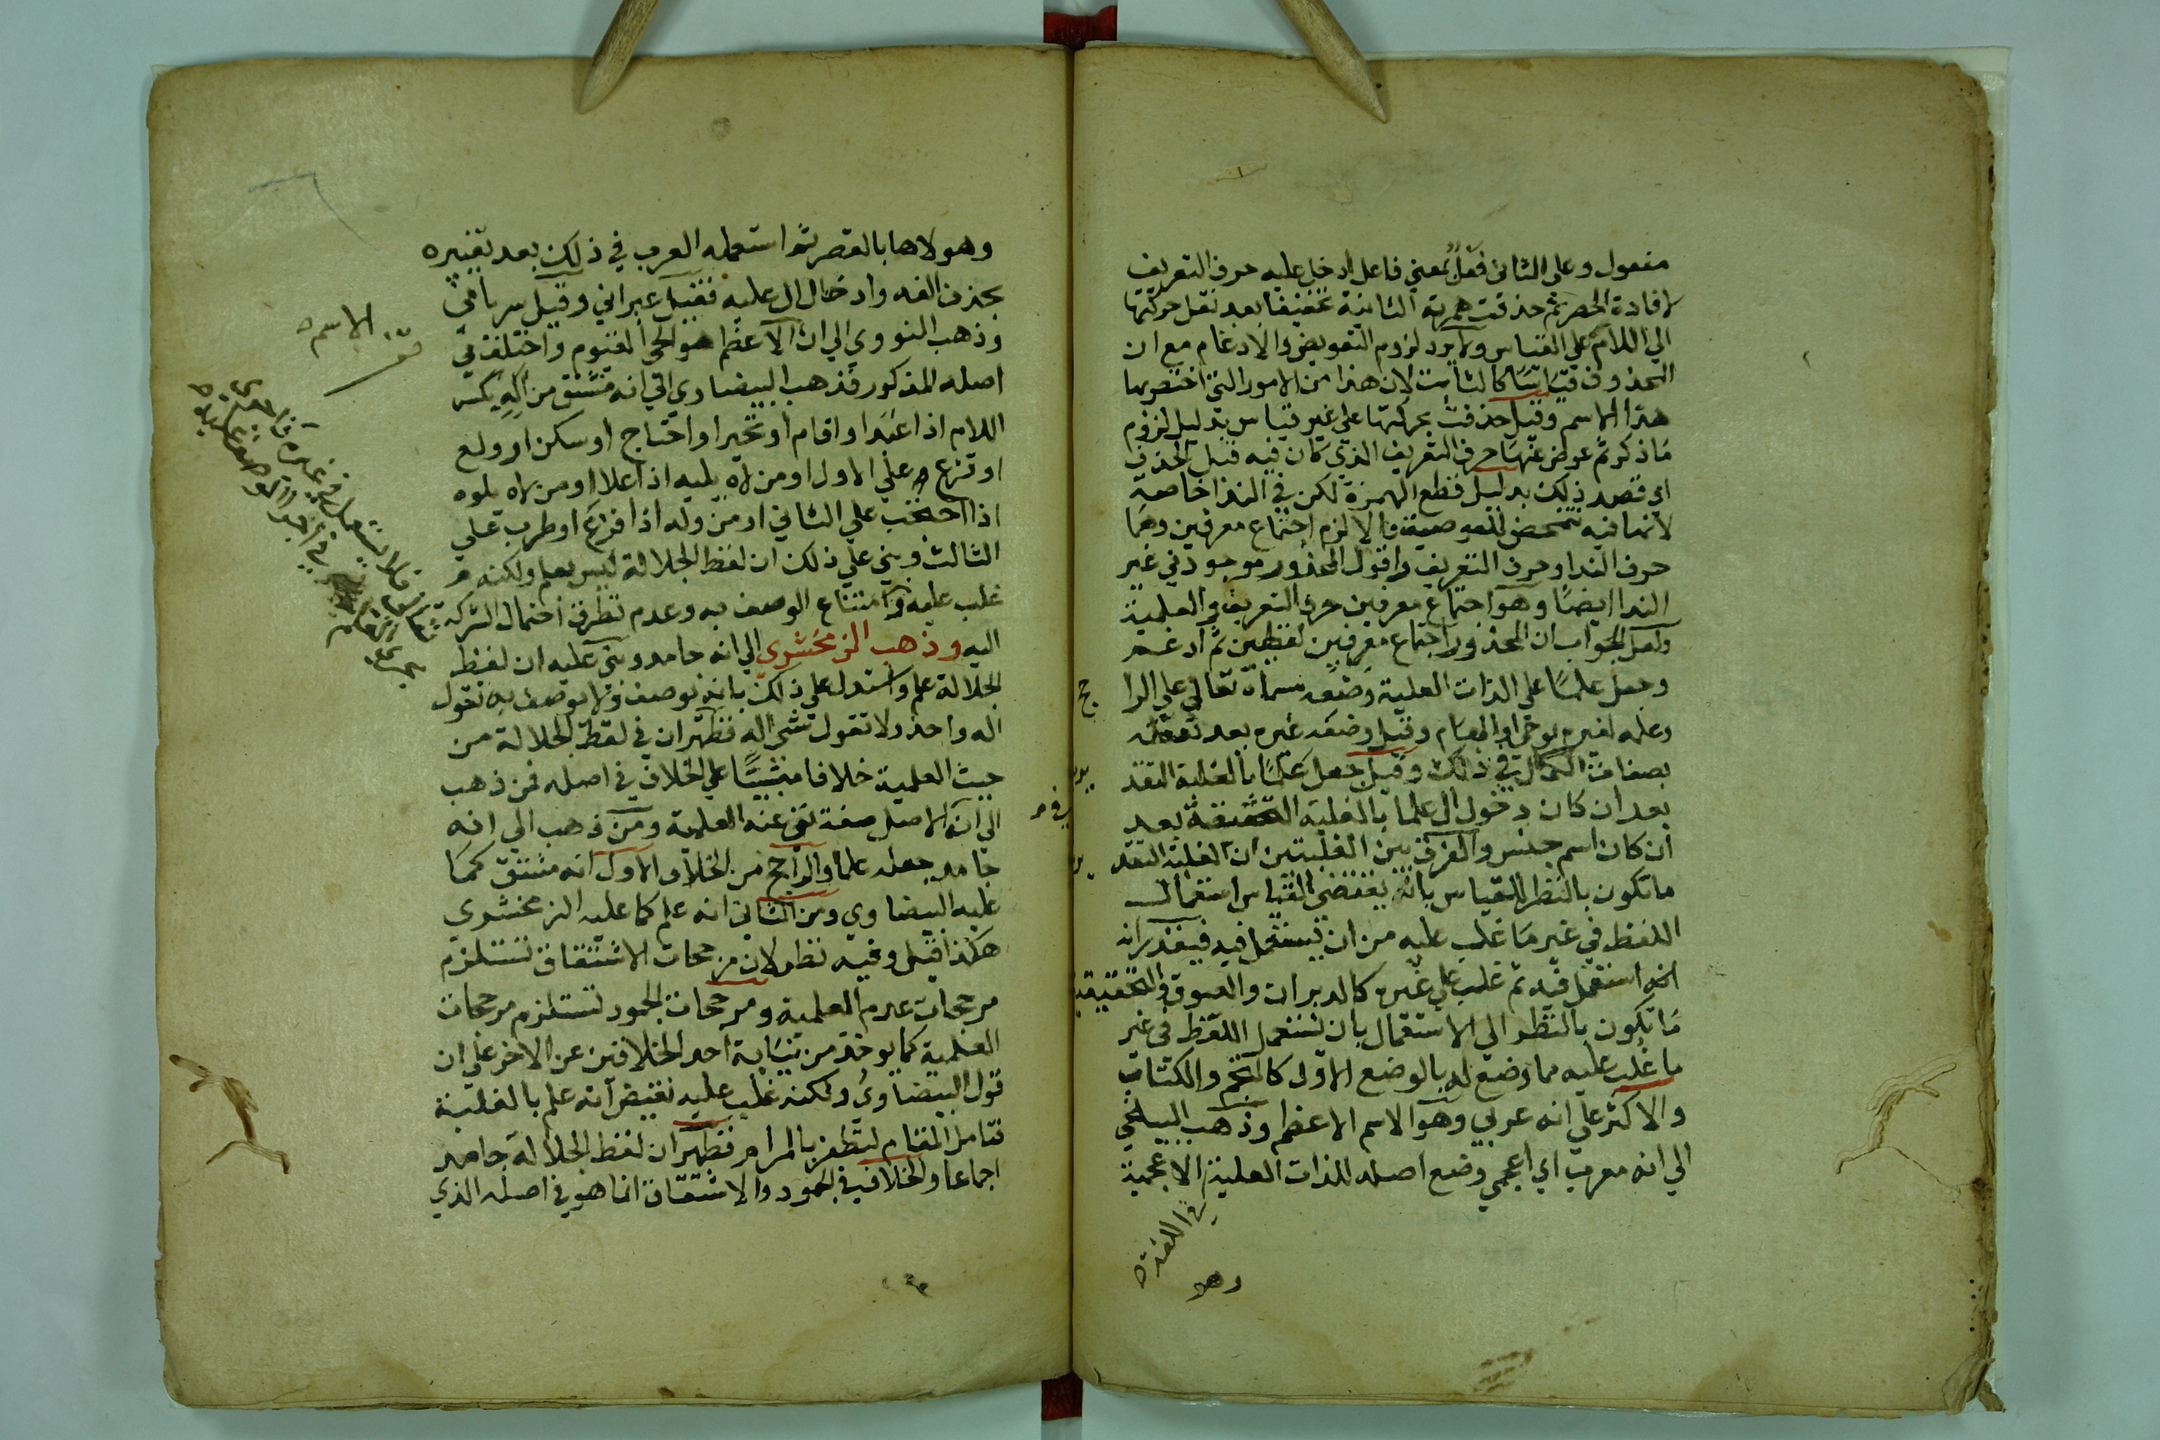 مفعول وعلى الثاني فعل بمعنى فاعل ادخل عليه حرف التعريف
لافادة الحصر ثم حذفت همزته الثانية تخفيفا بعد نقل حركتها
الي اللام علي القياس ولا يرد لزوم التعويض والادغام مع ان
المحذوف قياسيا كالثابت لان هذا من الامور التي اختص بها
هذا الاسم وقيل حذفت بحركتها علي غير قياس بدليل لزوم
ما ذكر ثم عوض عنها حرف التعريف الذي كان فيه قبل الحذف
اي قصد ذلك بدليل قطع الهمزة لكن في الندا خاصة
لانها فيه تتمحض للعوضية والا لزم اجتماع معرفين وهما
حرف الندا وحرف التعريف واقول المحذور موجود في غير
الندا ايضا وهو اجتماع معرفين حرف التعريف والعلمية
ولعل الجواب ان المحذور اجتماع معرفين لفظيين ثم ادغم
وجعل علما على الذات العلية وضعه سماه تعالي علي الرا
جح
وعلمه لغيره بوحي او الهام وقيل وضعه غيره بعد تعقله
بصفات الكمال في ذلك وقيل جعل علما بالغلبة التقد
يرية
بعد ان كان دخول ال علما بالغلبة التحقيقة بعد
ان كان اسم جنس والفرق بين الغلبتين ان الغلبة التقد
ما تكون بالنظر للقياس بانه يقتضي القياس استعمال
اللفظ في غير ما غلب عليه من ان يستعمل فيه فيقدر انه
انه استعمل فيه ثم غلب علي غيره كالدبران والعيوق والتحقيقية
ما تكون بالنظر الي الاستعمال بان يستعمل اللفظ في غير
ما غلب عليه مما وضع له بالوضع الاول كالنجم والكتاب
والاكثر علي انه عربي وهو الاسم الاعظم وذهب البلخي
الي انه معرب اي اعجمي وضع اصله للذات العلية الاعجمية
في اللغة
وهو
وهو لاها بالقصر ثم استعمله العرب في ذلك بعد تغييره
بحذف الفه وادخال ال عليه فقيل عبراني وقيل سرياني
وذهب النووي الي ان الاعظم هو الحي القيوم واختلف في
الاسم
اصله المذكور فذهب البيضاوي الي انه مشتق من اله بكسر
اللام اذا عبد او اقام او تحير او احتاج او سكن او ولع
او نزع علي الاول او من لاه يليه اذا علا او من لاه يلوه
اذا احتجب علي الثاني او من وله اذا فزع او طرب علي
الثالث وبني علي ذلك ان لفظ الجلالة ليس بعلم ولكنه
غلب عليه وامتناع الوصف به وعدم تطرق احتمال الشركة
اليه وذهب الزمخشري الي انه جامد وبني عليه ان لفظ
الجلالة علم واستدل علي ذلك بانه يوصف ولا يوصف به تقول
اله واحد ولا تقول شي اله فظهر ان في لفظ الجلالة من
حيث العلمية خلافا مبنيا علي الخلاف في اصله فمن ذهب
الي ان الاصل صفة نفي عنه العلمية ومن ذهب الي انه
جامد جعله علما والراجح من الخلاف الاول انه مشتق كما
عليه البيضاوي ومن الثاني انه علم كما عليه الزمخشري
هكذا قيل وفيه نظر لان مرجحات الاشتقاق تستلزم
مرجحات عدم العلمية ومرجحات الجمود تستلزم مرجحات
العلمية كما يوخذ من بناية احد الخلافين عن الاخر علي ان
قول البيضاوي ولكنه غلب عليه نقيض انه علم بالغلبة
فتامل المقام لتظفر بالمرام فظهر ان لفظ الجلالة جامد
اجماعا والخلاف في الجمود والاشتقاق انما هو في اصله الذي